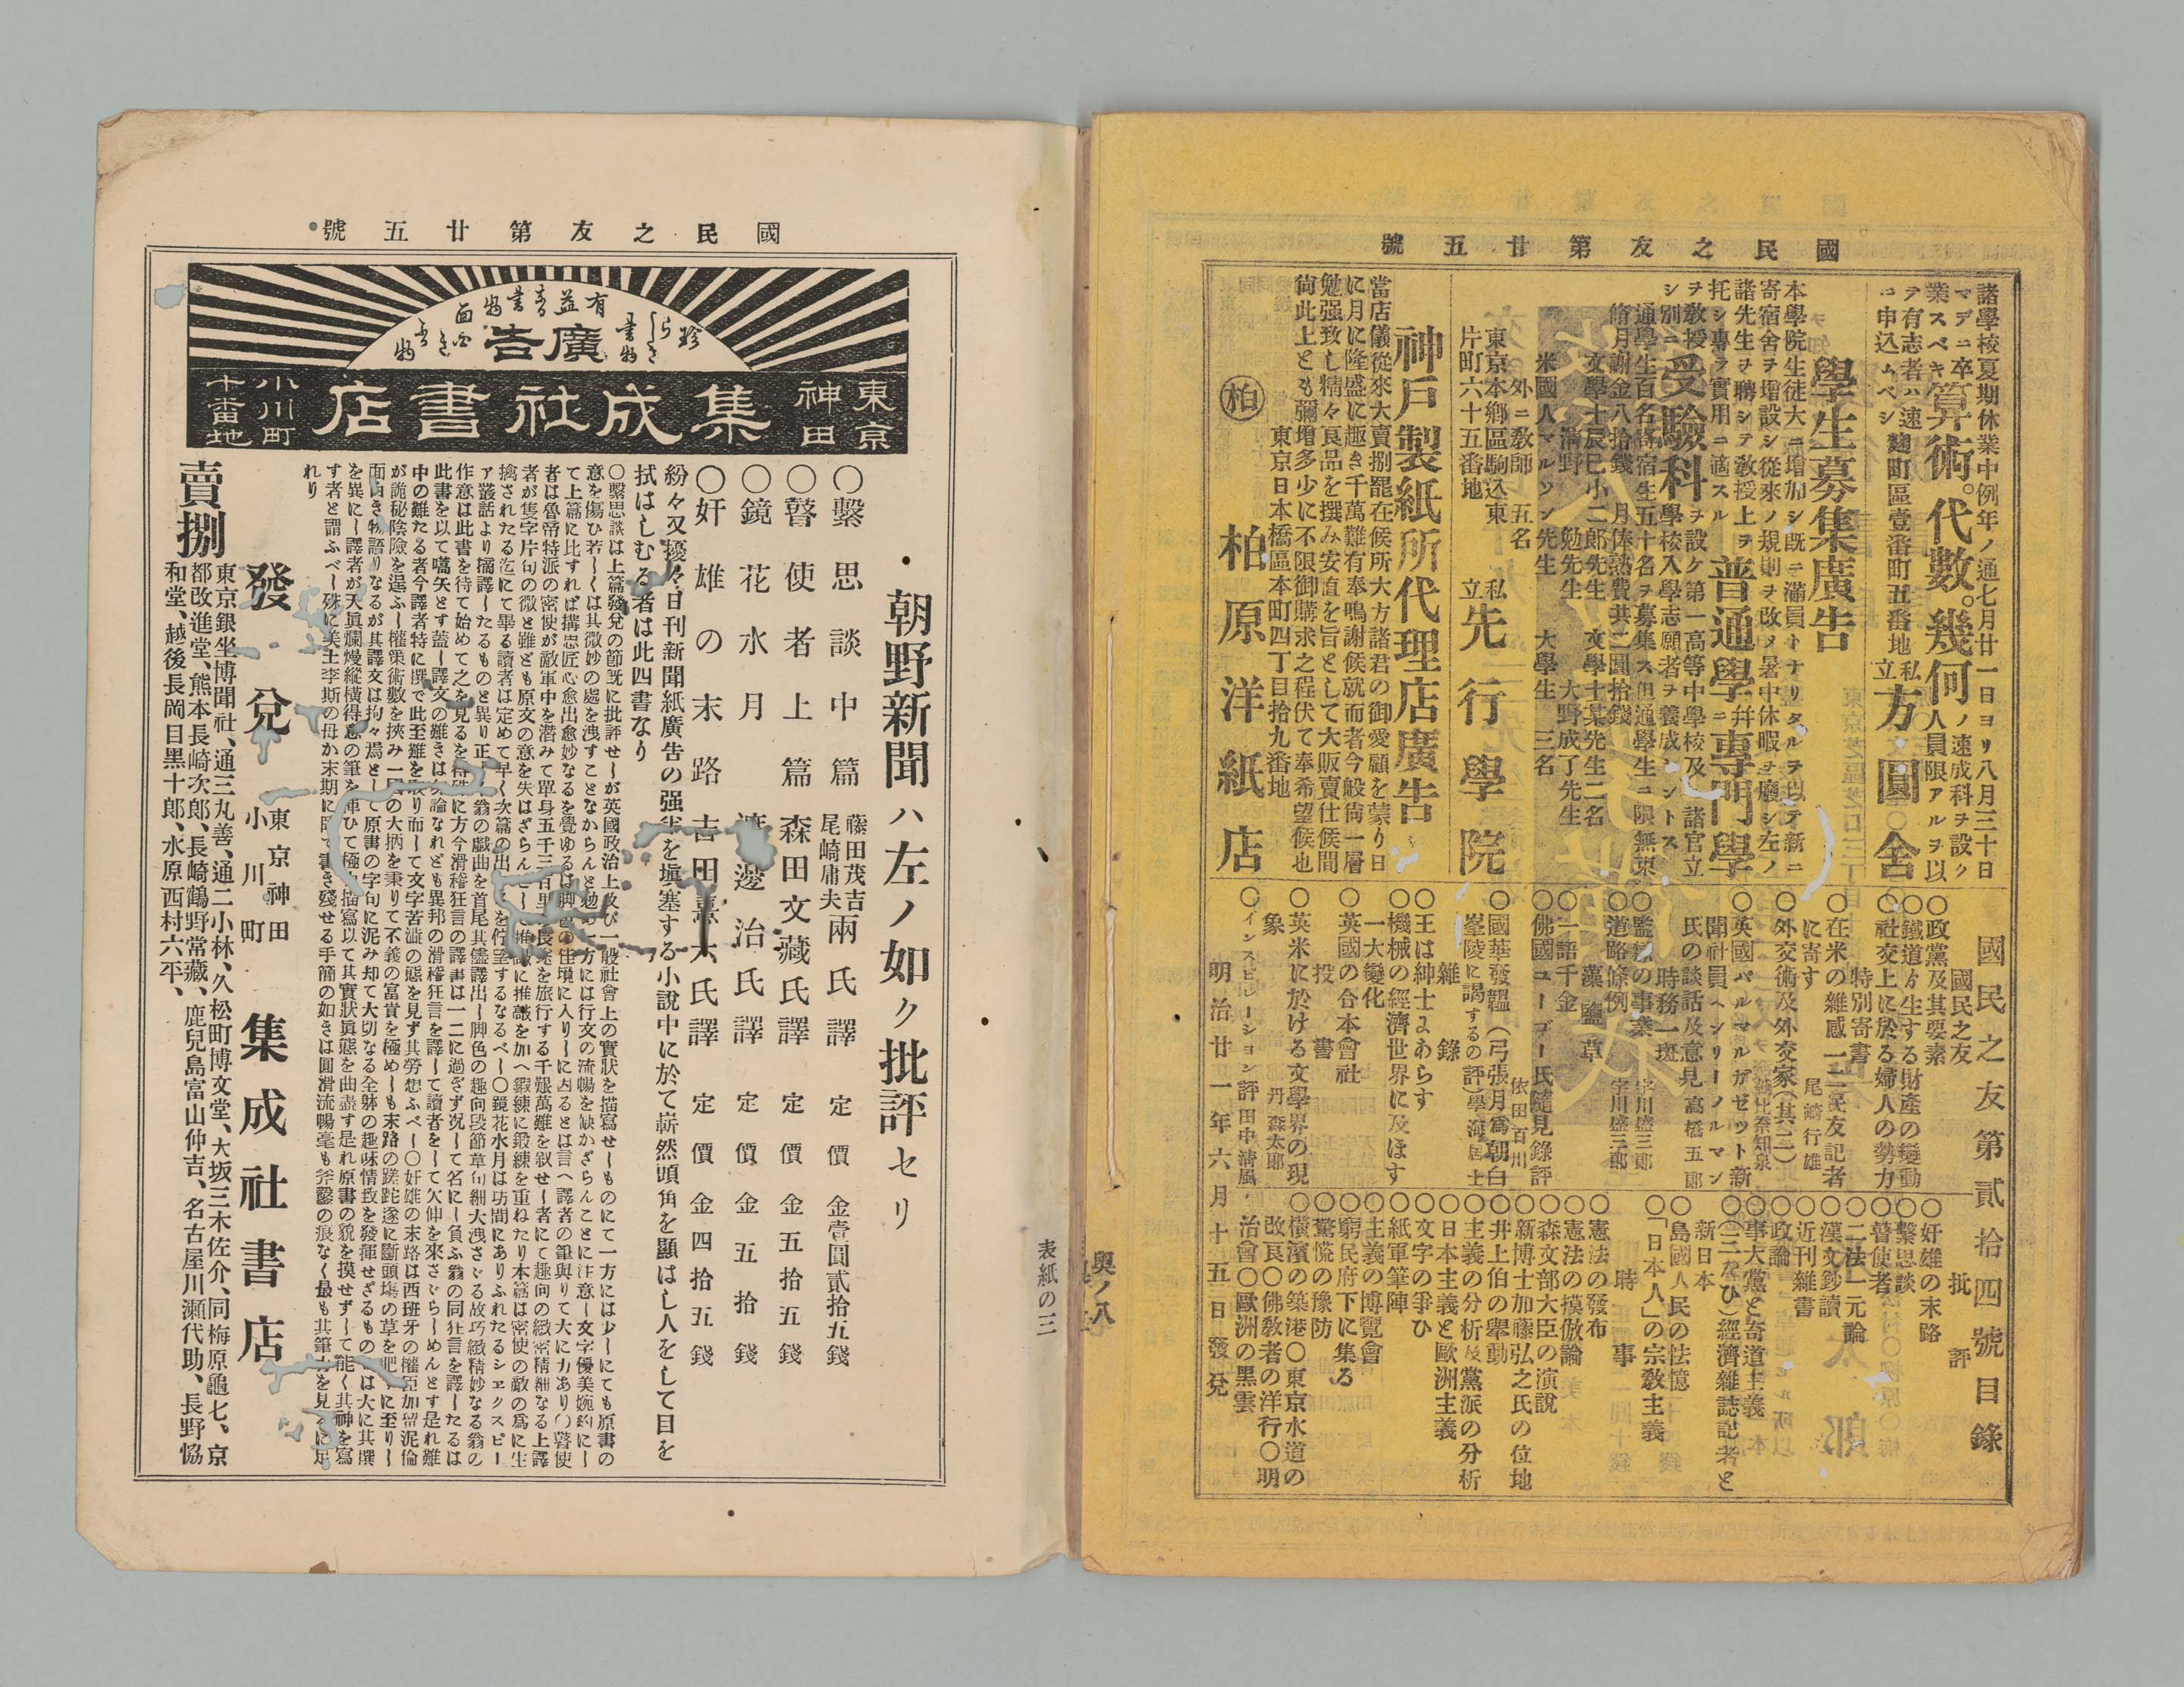 國民之友第廿五號
諸學校夏期休業中例年ノ通七月廿一日ヨリ八月三十日
マデニ卒業スベキ算術。代數。幾何ノ速成科ヲ設ク
人員限アルヲ以
テ有志者ハ速
ニ申込ムベシ
麴町區壹番町五番地
私立方圓舍
學生募集廣告
本學院生徒大ニ增加シ既ニ滿員トナリ
寄宿舍ヲ增設シ從來ノ規則ヲ改メ暑中休暇ヲ廢シ左ノ
諸先生ヲ聘シテ敎授上ヲ
托シ專ラ實用ニ適スル
普通學幷ニ專門學
ヲ敎授シ別ニ受驗科ヲ設ケ第一高等中學校及
諸官立學校入學志願者ヲ養成セントス
通學生百名寄宿生五十名ヲ募集ス但通學生ニ限無束
脩月謝金八拾錢
文學士辰巳小二郎先生
文學士某先生二名
米國人マルソン先生
大野成了先生
大學生三名
外ニ敎師五名
東京本鄕區駒込東
片町六十五番地
私立先行學院
神戶製紙所代理店廣告
當店儀從來大賣捌罷在候所大方諸君の御愛顧を蒙り日
に月に隆盛に趣き千萬難有奉鳴謝候就而者今般尙一層
勉强致し精々良品を撰み安直を旨として大販賣仕候間
尙此上とも彌增多少に不限御購求之程伏て奉希望候也
東京日本橋區本町四丁目拾九番地
柏
柏原洋紙店
國民之友第貳拾四號目錄
國民之友
○政黨及其要素
○鐵道が生する財產の變動
○社交上に於る婦人の勢力
特別寄書
○在米の雜感一二民友記者
に寄す
尾崎行雄
○外交術及外交家(其二)
○英國パルマルガゼット新
聞社員ヘンリーノルマン
氏の談話及意見
高橋五郎
時務一斑
○監獄の事業
宇川盛三郎
○道路條例
宇川盛三郎
漢鹽草
○一語千金
○佛國ユーゴー氏隨見錄評
依田百川
○國華發韞(弓張月爲朝白
峯陵に謁するの評)學海居士
雜錄
○王は紳士よあらす
○機械の經濟世界に及ほす
一大變化
○英國の合本會社
投書
○英米に於ける文學界の現
象
丹森太郎
○インスピレーション評
田中淸風
明治廿一年六月十五日發兌
批評
○奸雄の末路
○繫思談
○瞽使者
○二法一元論
○漢文鈔讀
○近刊雜書
○政論
○事大黨と奇道主義
○(三たひ)經濟雜誌記者と
新日本
○島國人民の怯憶
○「日本人」の宗敎主義
時事
○憲法の發布
○憲法の摸倣論
○森文部大臣の演說
○新博士加藤弘之氏の位地
○井上伯の擧動
○主義の分析及黨派の分析
○日本主義と歐洲主義
○文字の爭ひ
○紙軍筆陣
○主義の博覽會
○窮民府下に集る
○驚慌の豫防
○橫濱の築港○東京水道の
改良○佛敎者の洋行○明
治會○歐洲の黑雲
與ノ八
表紙の三
國民之友第廿五號
珍らしき書物
有益あ書物
面白き書物
廣告
東京神田
集成社書店
小川町十番地
朝野新聞ハ左ノ如ク批評セリ
○繫思談中篇
藤田茂吉
尾崎庸夫
兩氏譯
定價金壹圓貳拾五錢
○瞽使者上篇
森田文藏氏譯
定價金五拾五錢
○鏡花水月
渡邊治氏譯
定價金五拾錢
○奸雄の末路
吉田憙六氏譯
定價金四拾五錢
紛々又擾々日刊新聞紙廣告の强半を塡塞する小說中に於て嶄然頭角を顯はし人をして目を
拭はしむる者は此四書なり
○繫思談は上篇發兌の節既に批評せしが英國政治上及び一般社會上の實狀を描寫せしものにて一方には少しにても原書の
意を傷ひ若しくは其微妙の處を洩すことなからんと勉め一方には行文の流暢を缺かざらんことに注意し文字優美婉約にし
て上篇に比すれば搆思匠心愈出愈妙なるを覺ゆるは脚色の佳境に入りしに因るとは言へ譯者の筆與りて大に力あり○瞽使
者は魯帝特派の密使が敵軍中を潛みて單身五千三百里の長途を旅行する千艱萬難を叙せし者にて趣向の緻密精細なる上譯
者が隻字片句の微と雖とも原文の意を失はざらんとし推敲に推敲を加へ鍛練に鍛練を重ねたり本篇は密使の敵の爲に生
擒されたる迄にて畢る讀者は定めて早く次篇の出るを佇望するなるべし○鏡花水月は坊間にありふれたるシエクスピー
ア叢話より摘譯したるものと異り正しく翁の戲曲を首尾其儘譯出し脚色の趣向段節章句細大洩さゞる故巧緻精妙なる翁の
作意は此書を待て始めて之を見るを得殊に方今滑稽狂言の譯書は一二に過ぎず況して名にし負ふ翁の同狂言を譯したるは
此書を以て嚆矢とす蓋し譯文の難きは勿論なれども異邦の滑稽狂言を譯して讀者をして欠伸を來さゞらしめんとす是れ難
中の難たる者今譯者特に撰で此至難を取り而して文字苦澁の態を見ず其勞想ふべし○奸雄の末路は西班牙の權臣加留泥倫
が詭秘陰險を逞ふし權策術數を挾み一國の大柄を秉りて不義の富賞を極めしも末路の蹉跎遂に斷頭塲の草を肥すに至りし
面白き物語りなるが其譯文は拘々焉として原書の字句に泥み却て大切なる全躰の趣味情致を發揮せざるものとは大に其撰
を異にし譯者が天眞爛熳縱橫得意の筆を揮ひて極力描寫以て其實狀眞態を曲盡す是れ原書の貌を摸せずして能く其神を寫
す者と謂ふべし殊に美土李斯の母か末期に臨て書き殘せる手簡の如きは圓滑流暢毫も斧鑿の痕なく最も其筆力を見るに足
れり
發兌
東京神田
小川町
集成社書店
賣捌
東京銀坐博聞社、通三丸善、通二小林、久松町博文堂、大坂三木佐介、同梅原龜七、京
都改進堂、熊本長崎次郎、長崎鶴野常藏、鹿兒島富山仲吉、名古屋川瀨代助、長野協
和堂、越後長岡目黑十郎、水原西村六平、